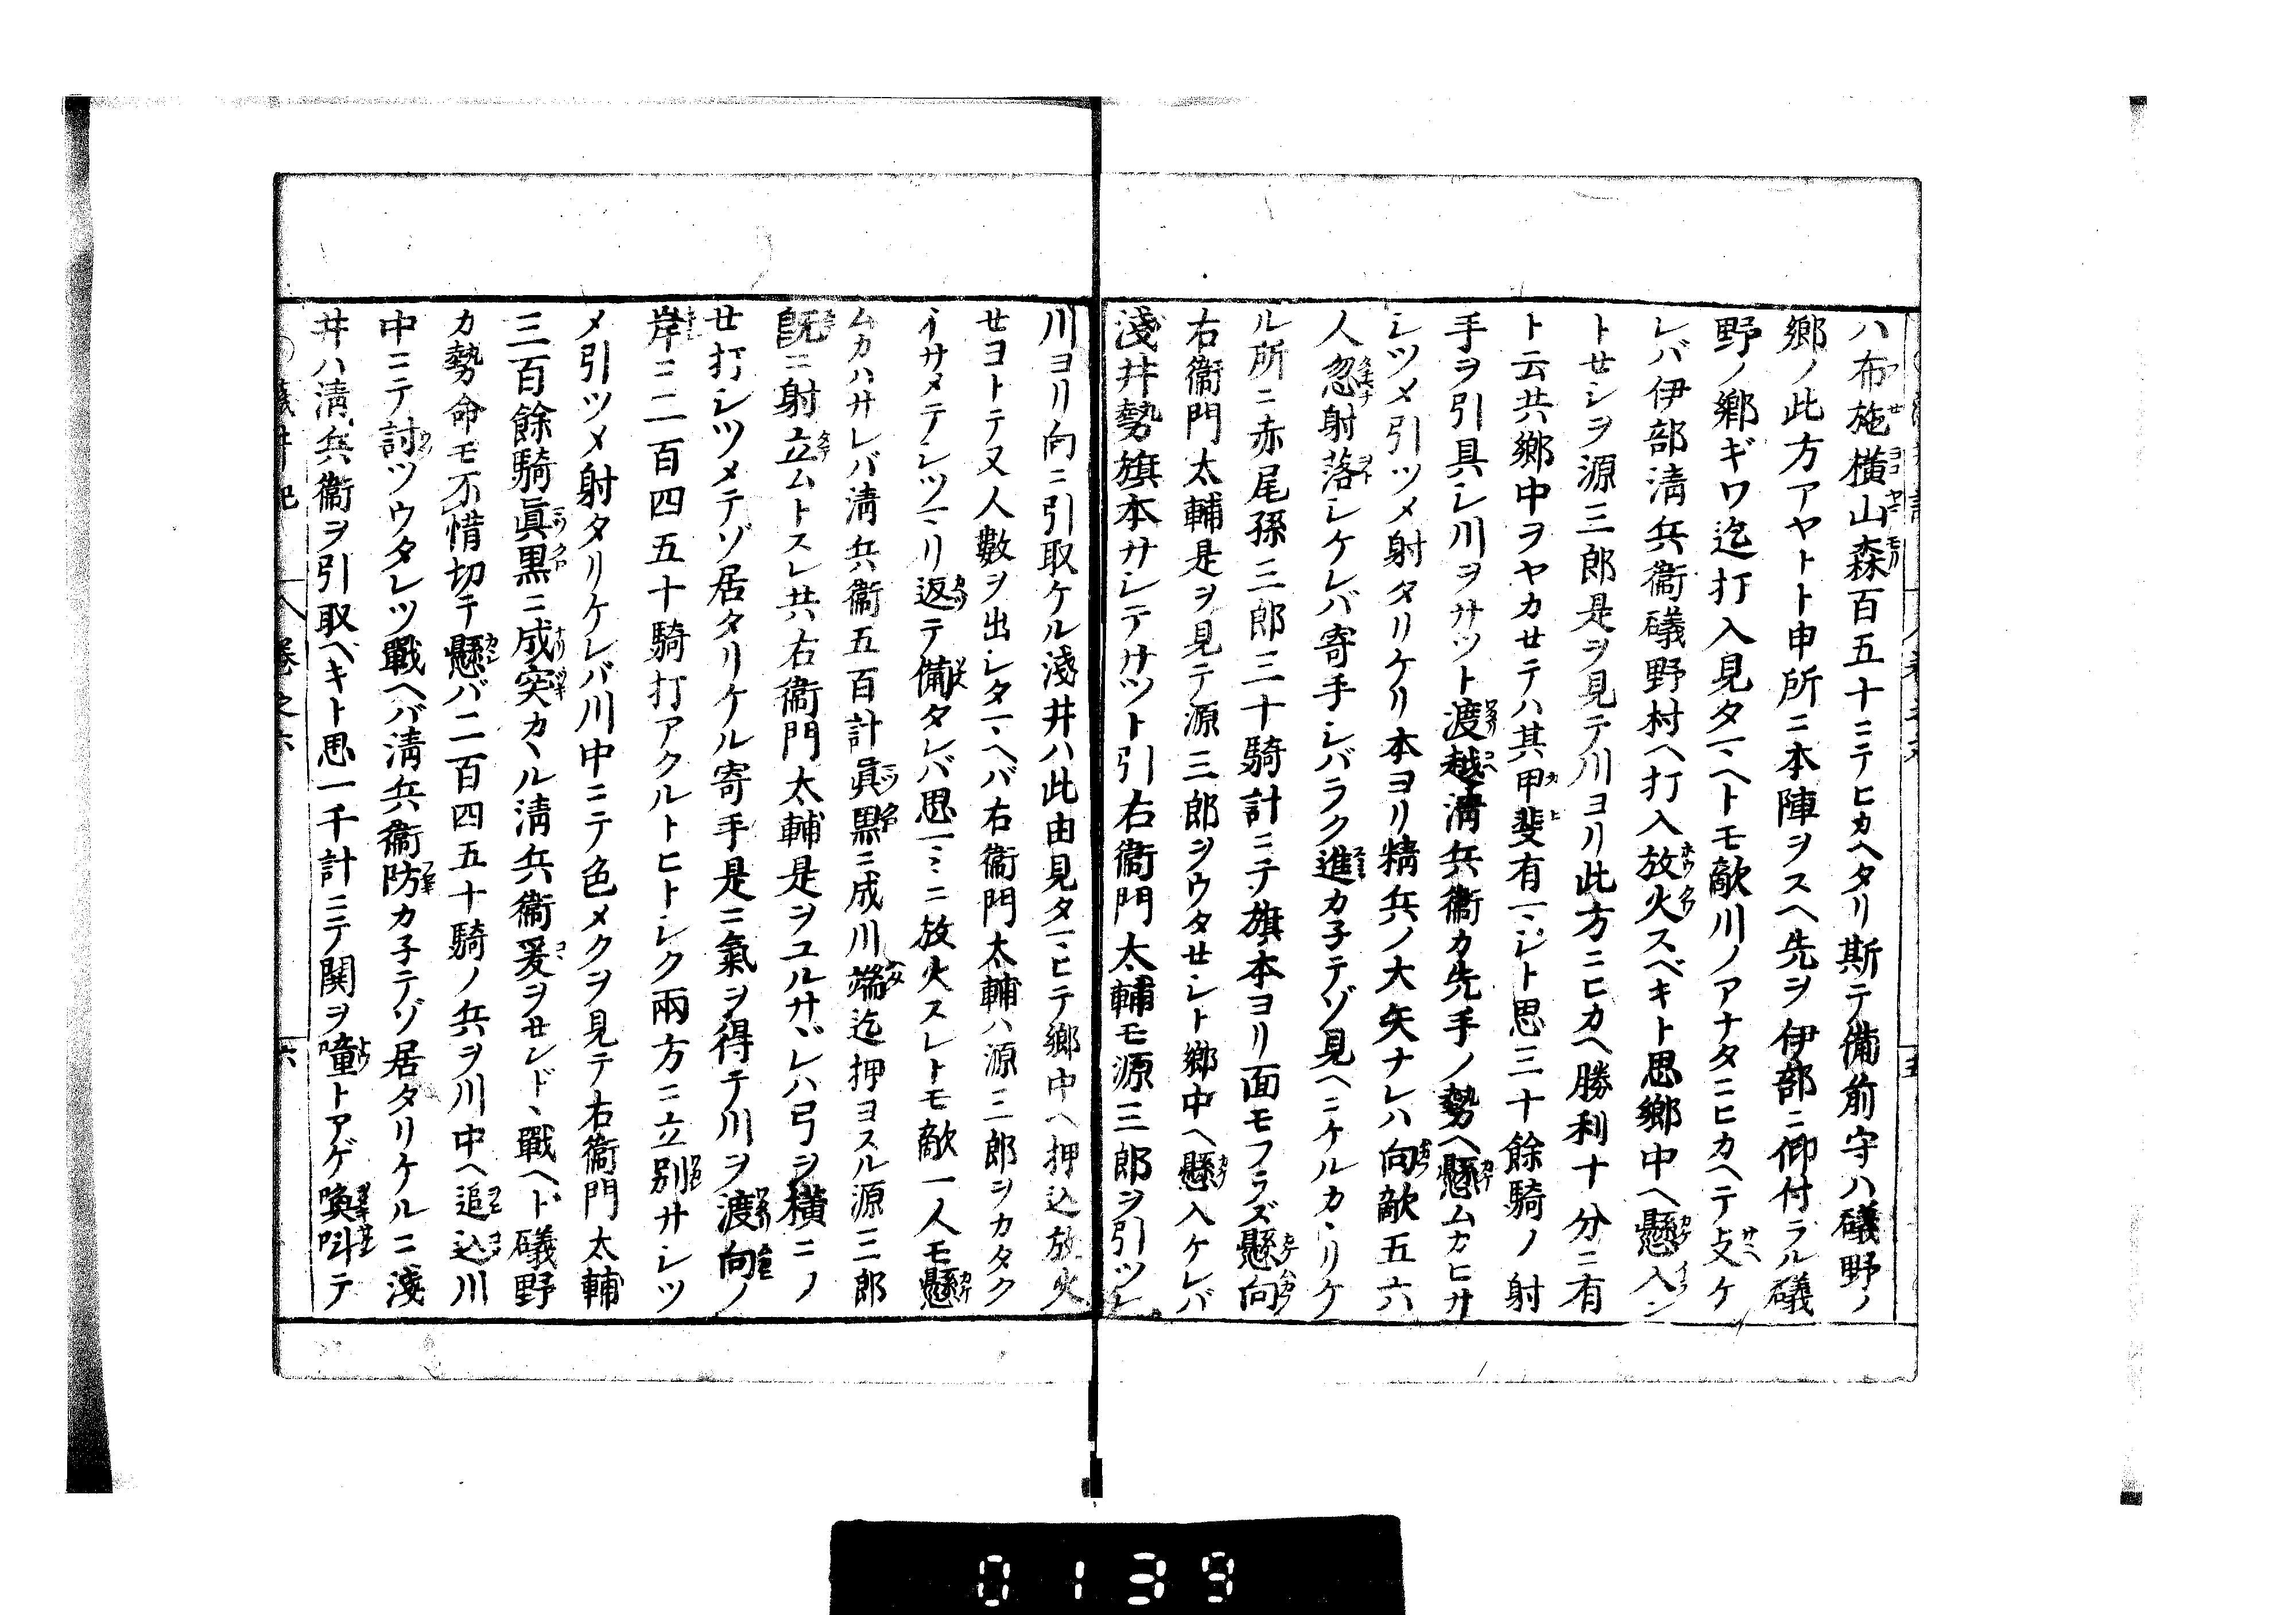 ハ布施横山森百五十ニテヒカヘタリ斯テ備前守ハ礒野ノ
郷ノ此方アヤトト申所ニ本陣ヲスヘ先ヲ伊部ニ仰付ラル礒
野ノ郷ギワ迄打入見タマヘトモ敵川ノアナタニヒカヘテ支ケ
レバ伊部淸兵衞礒野村ヘ打入放火スベキト思郷中ヘ懸入ン
トせシヲ源三郎是ヲ見テ川ヨリ此方ニヒカヘ勝利十分ニ有
ト云共郷中ヲヤカせテハ其甲斐有マジト思三十餘騎ノ射
手ヲ引具シ川ヲサツト渡越淸兵衞カ先手ノ勢ヘ懸ムカヒサ
シツメ引ツメ射タリケリ本ヨリ精兵ノ大矢ナレハ向敵五六
人忽射落シケレバ寄手シバラク進カ子テゾ見ヘニケルカヽリケ
ル所ニ赤尾孫三郎三十騎計ニテ旗本ヨリ面モフラズ懸向
右衞門太輔是ヲ見テ源三郎ヲウタせシト郷中ヘ懸入ケレバ
淺井勢旗本サシテサツト引右衞門太輔モ源三郎ヲ引ツレ
川ヨリ向ニ引取ケル淺井ハ此由見タマヒテ郷中ヘ押込放火
せヨトテ又人數ヲ出シタマヘバ右衞門太輔ハ源三郎ヲカタク
イサメテシツマリ返テ備タレバ思マヽニ放火スレトモ敵一人モ懸
ムカハサレバ淸兵衞五百計眞黒ニ成川端迄押ヨスル源三郎
既ニ射立ムトスレ共右衞門太輔是ヲユルサヾレハ弓ヲ横ニノ
せ打シツメテゾ居タリケル寄手是ニ氣ヲ得テ川ヲ渡向ノ
岸ニ二百四五十騎打アクルトヒトシク兩方ニ立別サシツ
メ引ツメ射タリケレバ川中ニテ色メクヲ見テ右衞門太輔
三百餘騎眞黒ニ成突カヽル淸兵衞爰ヲせンドヽ戰ヘド礒野
カ勢命モ不惜切テ懸バ二百四五十騎ノ兵ヲ川中ヘ追込川
中ニテ討ツウタレツ戰ヘバ淸兵衞防カ子テゾ居タリケルニ淺
井ハ淸兵衞ヲ引取ベキト思一千計ニテ関ヲ噇トアゲ喚呌テ
淺井記 卷之六 六
0139